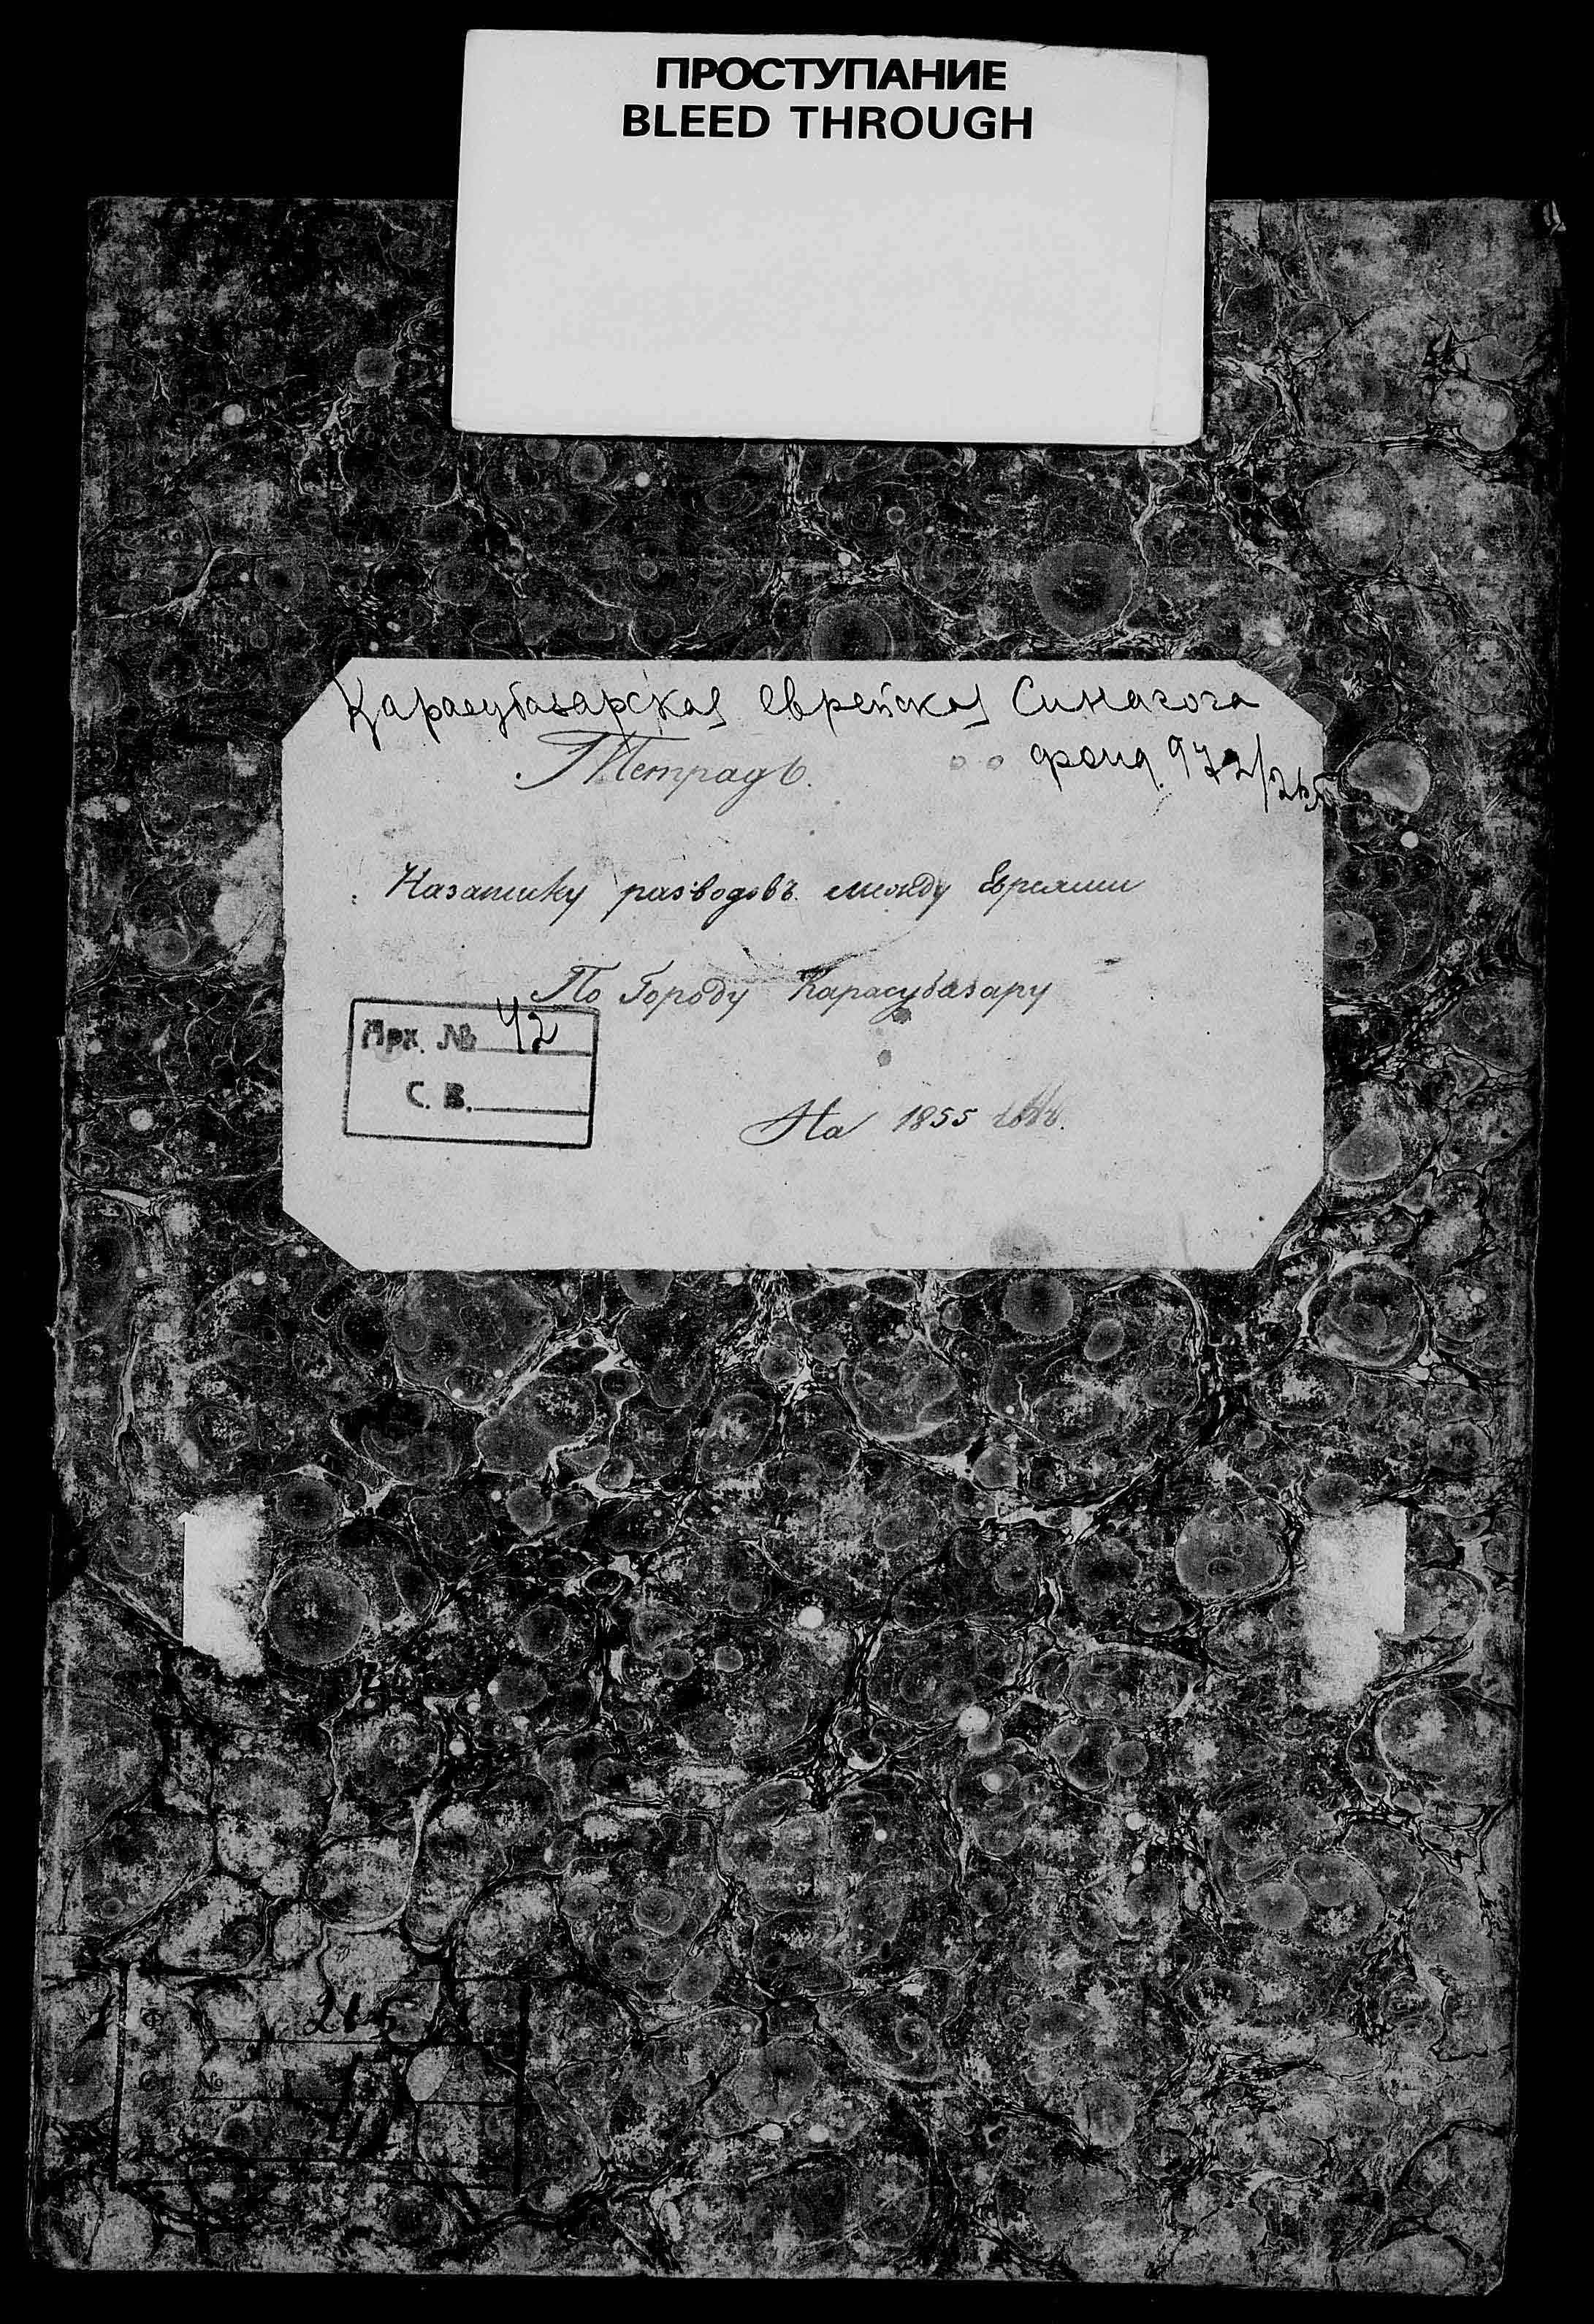 ПРОСТУПАНИЕ
BLEED THROUGH
Карасубазарская еврейская Синагога
Тетрадь.
фонд 972/265
Назаписку разводовъ между Евреями
По Городу Карасубазару
Арх. № 42
С. В.
На 1855 годъ.
Ф 265
№
42